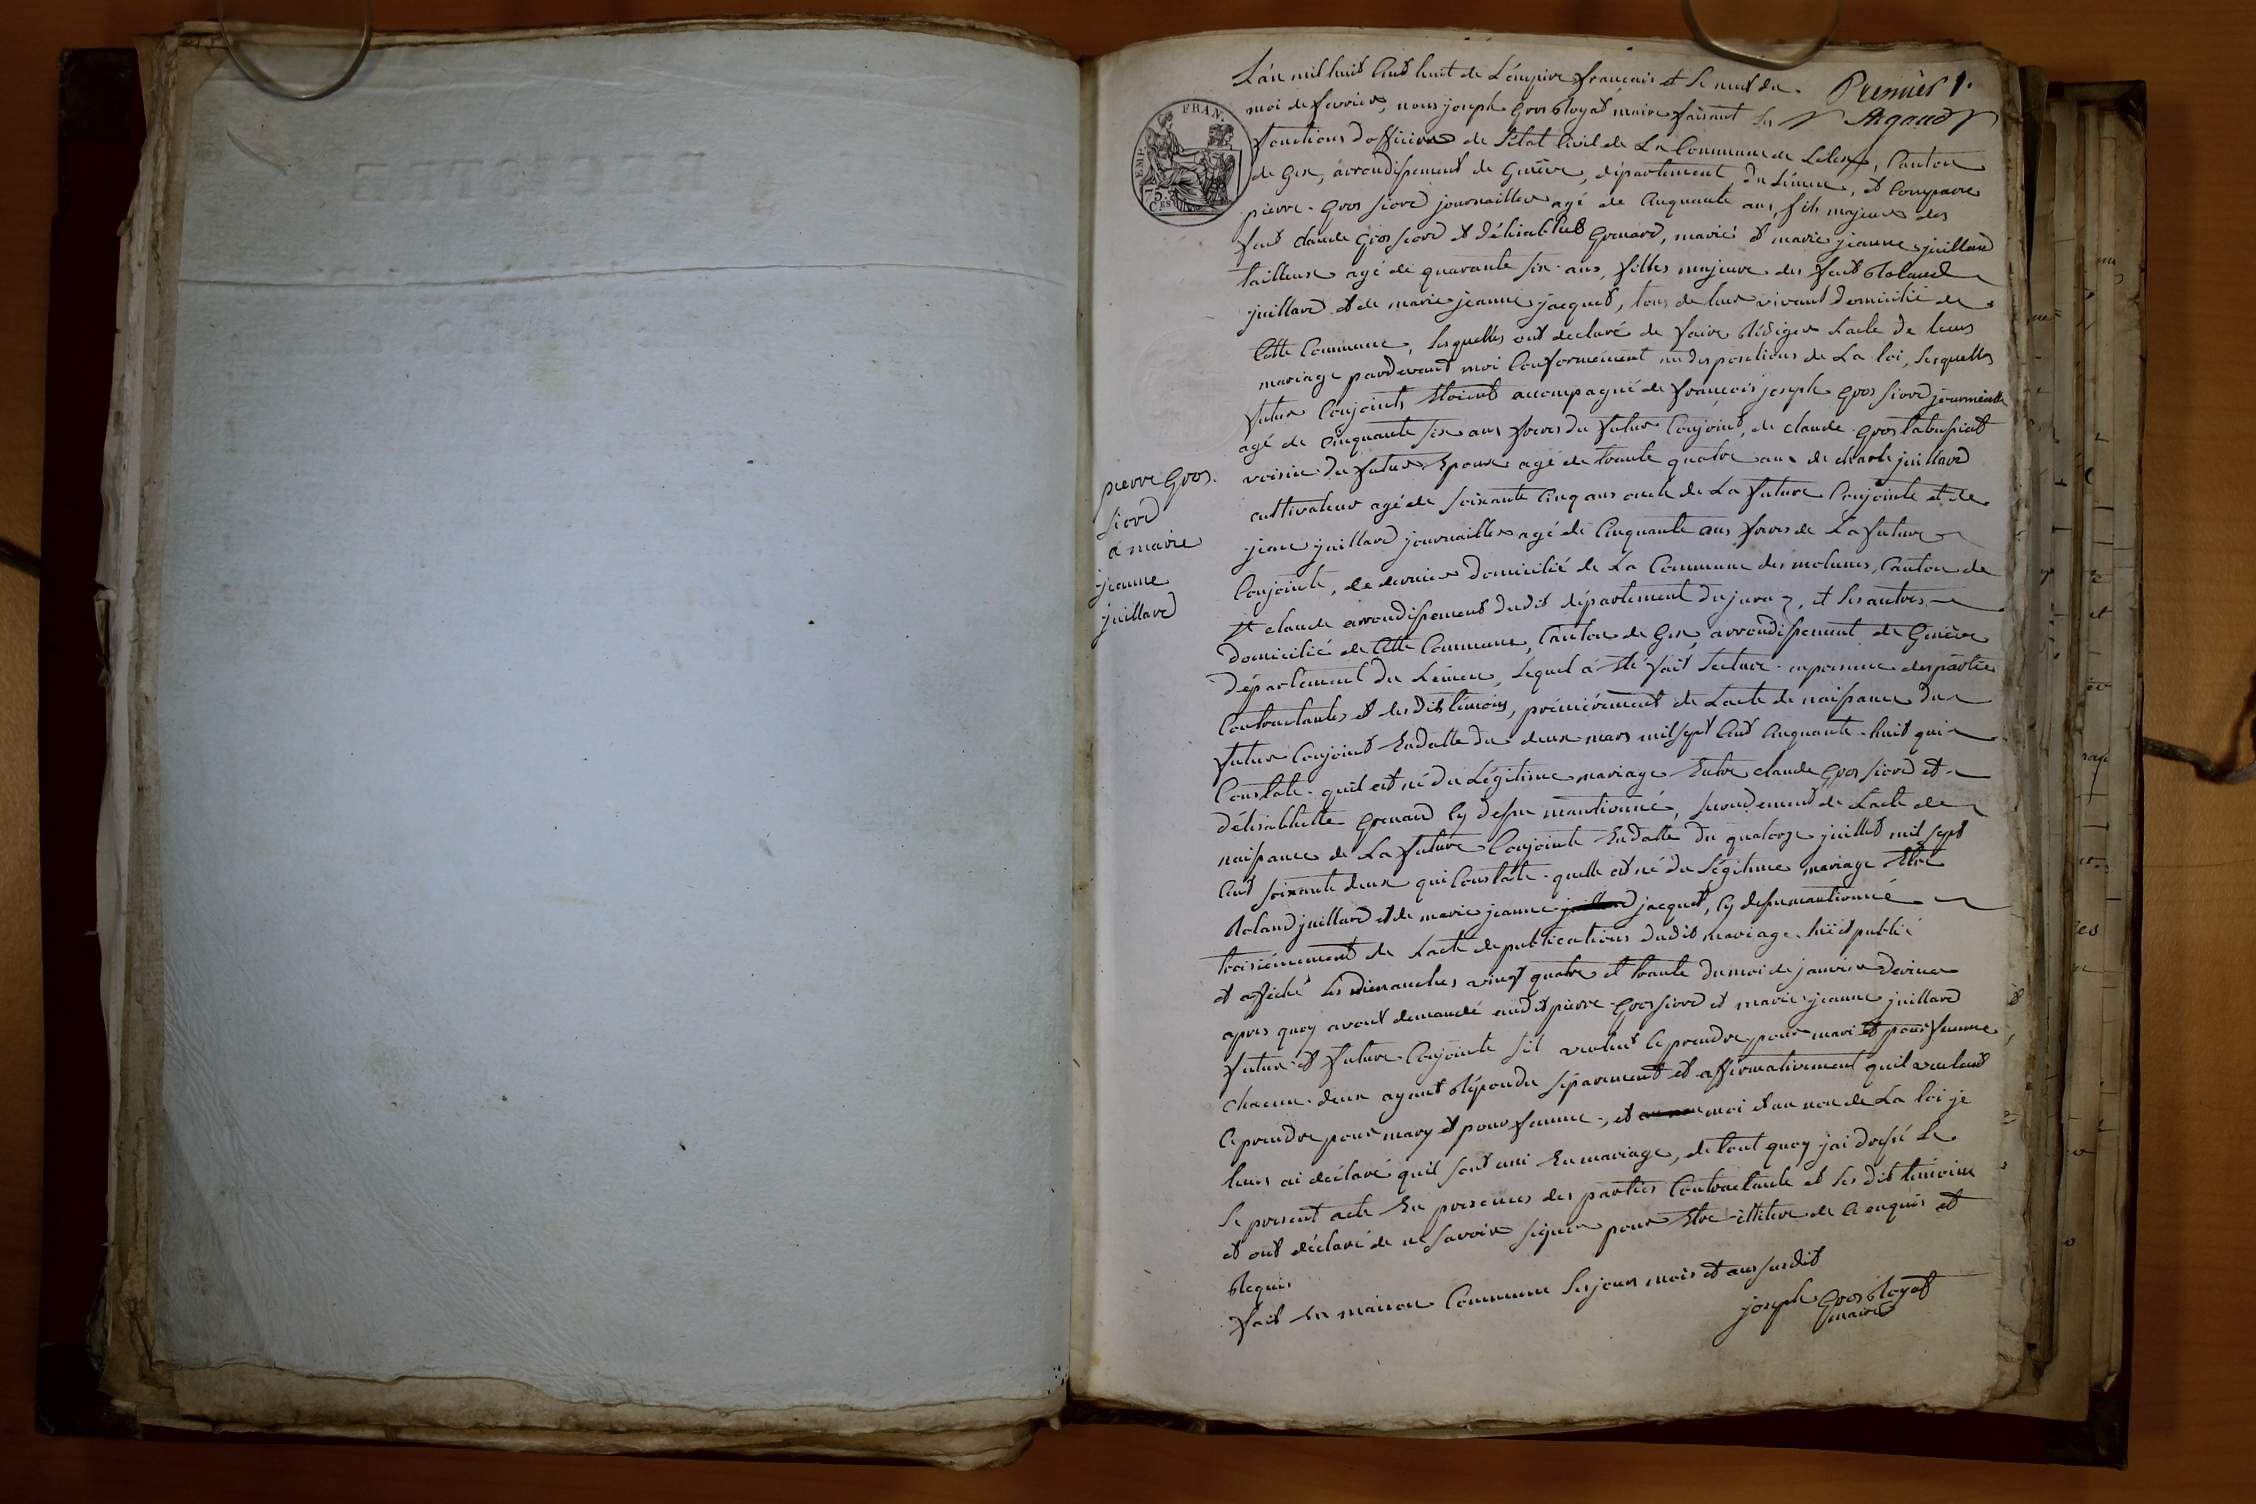 L'an mil huit Cent huit de L'émpire francais et le neuf du
Premier 1.
moi de fevrier, nous joseph Gros Royat maire faisant les
Argoud
fonctions dofficier de létat Civil de La Commune de Lelex, Canton
EMP. FRAN.
75.
CES
de Gex, arrondissement de Genève, département du Léman, et Comparu
pierre Gros fiord journaillier agé de Cinquante ans, fils majeur des
feut claude Gros fiord et délisabhet Grenard, marié et marie jeanne juillard
tailleuse agé de quarante six ans, filles majeure des feut Roland
juillard et de marie jeanne jacquet, tous de leur vivant domicilié de
Cette Commune, lesquelles ont declaré de faire Rédiger L'acte de leurs
mariage pardevant moi Conformément au dispositions de La loi, lesquelles
futur Conjoints Etoient accompagné de francois joseph Gros fiord
agé de Cinquante six ans freres du futur Conjoint, de claude Gros
voisin du futur Epoux agé de trante quatre ans de charle juillard
pierre Gros
fiord
& marie
jeanne
juillard
cultivateur agé de soixante Cinq ans oncle de La future Conjointe et de
jean juillard journaillier agé de Cinquante ans freres de La future
Conjointe, le dernier domicilié de La Commune des molunes, Canton de
St claude arrondissement dudit département du jura, et les autres
domicilié de Cette Commune, Canton de Gex, arrondissement de Genève
département du Léman, lequel á été fait lecture en presence des partie
Contractantes et des dits témoins, prémiérement de L'acte de naissance du
futur Conjoint En datte du deux mars mil sept Cent Cinquante huit qui
Constate quil est né du Légitime mariage Entre claude Gros fiord et
délisabhette Grenard Cy dessu mantionné, secondement de L'acte de
naissance de La future Conjointe En datte du quatorze juillet mil sept
Cent soixante deux qui Constate quelle est né du Légitime mariage Etre
Roland juillard et de marie jeanne juillard jacquet, Cy dessu mantionné
troisiémement de L'acte de publications dudit mariage publié
et affiché les dimanches vingt quatre et trante du moi de janvier dernier
apres quoy avont demandé audit pierre Gros fiord et marie jeanne juillard
futur et future Conjointe sil veulent Ce prendre pour mari et pour femme
chacun deux ayant Répondu séparement et affirmativement quil veulent
Ce prendre pour mary et pour femme, et au nom moi et au non de La loi je
leurs ai déclaré quil sont uni En mariage, de tout quoy jai dressé le
le present acte En presences des parties Contractante et les dit témoins
et ont déclaré de ne savoir signer pour Etre illitere de Ce enquis et
Requis
fait En maison Commune les jours mois et an susdit
joseph Gros Royat
maire